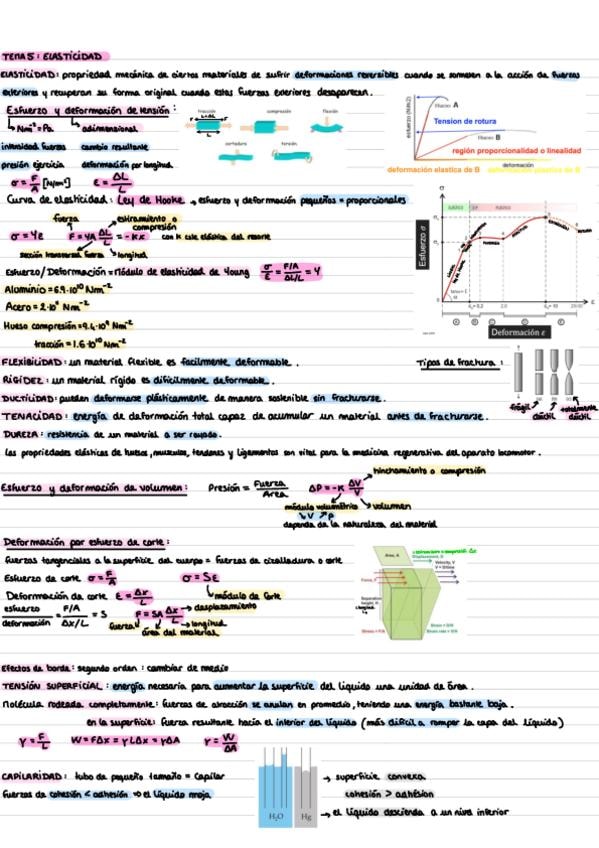 TEMA 5: ELASTICIDAD
ELASTICIDAD: propiedad mecánica de ciertos materiales de sufrir deformaciones reversibles cuando se someten a la acción de fuerzas
exteriores y recuperan su forma original cuando estas fuerzas exteriores desaparecen.
Esfuerzo y deformación de tensión:
Nm⁻² = Pa. adimensional
intensidad fuerzas cambio resultante
presión ejercicio deformación por longitud
σ = F/A [N/m²] ε = ΔL/L
tracción compresión flexión
cortadura torsión
esfuerzo (N/m2)
A
Tension de rotura
B
región proporcionalidad o linealidad
deformación
deformación elastica de B deformación plastica de B
Curva de elasticidad: Ley de Hooke → esfuerzo y deformación pequeños = proporcionales
fuerza estiramiento o
compresión
σ = Yε F = YA ΔL/L = -kx con k cte elástica del resorte
sección transversal fuerza longitud
Esfuerzo/Deformación = Módulo de elasticidad de Young σ/ε = F/A / ΔL/L = Y
Aluminio = 6.9·10¹⁰ Nm⁻²
Acero = 2·10¹¹ Nm⁻²
Hueso compresión = 9.4·10⁹ Nm⁻²
tracción = 1.6·10¹⁰ Nm⁻²
Esfuerzo σ
Deformación ε
FLEXIBILIDAD: un material flexible es facilmente deformable.
RIGIDEZ: un material rígido es difícilmente deformable.
DUCTILIDAD: pueden deformarse plásticamente de manera sostenible sin fracturarse.
TENACIDAD: energía de deformación total capaz de acumular un material antes de fracturarse.
DUREZA: resistencia de un material a ser rayado.
Tipos de fractura:
frágil dúctil totalmente
dúctil
Las propiedades elásticas de huesos, musculos, tendones y ligamentos son vital para la medicina regenerativa del aparato locomotor.
hinchamiento o compresión
Esfuerzo y deformación de volumen: Presión = Fuerza/Area ΔP = -K ΔV/V
módulo volumétrico volumen
↓V ↗P
depende de la naturaleza del material
Deformación por esfuerzo de corte:
fuerzas tangenciales a la superficie del cuerpo = fuerzas de cizalladura o corte
Esfuerzo de corte σ = F/A σ = Sε
Deformación de corte ε = Δx/L módulo de corte
esfuerzo/deformación = F/A / Δx/L = S F = SA Δx/L desplazamiento
fuerza longitud
área del material
Area, A
Displacement, X
Velocity, V
Force, F
Separation
height, H
Efectos de borde: segundo orden: cambiar de medio
TENSIÓN SUPERFICIAL: energía necesaria para aumentar la superficie del líquido una unidad de área.
Molécula rodeada completamente: fuerzas de atracción se anulan en promedio, teniendo una energía bastante baja.
en la superficie: fuerza resultante hacia el interior del líquido (más difícil a romper la capa del líquido)
γ = F/L W = FΔx = γLΔx = γΔA γ = W/ΔA
CAPILARIDAD: tubo de pequeño tamaño = capilar
fuerzas de cohesión < adhesión ⇒ el líquido moja
H₂O Hg
→ superficie convexa
cohesión > adhesión
→ el líquido desciende a un nivel inferior